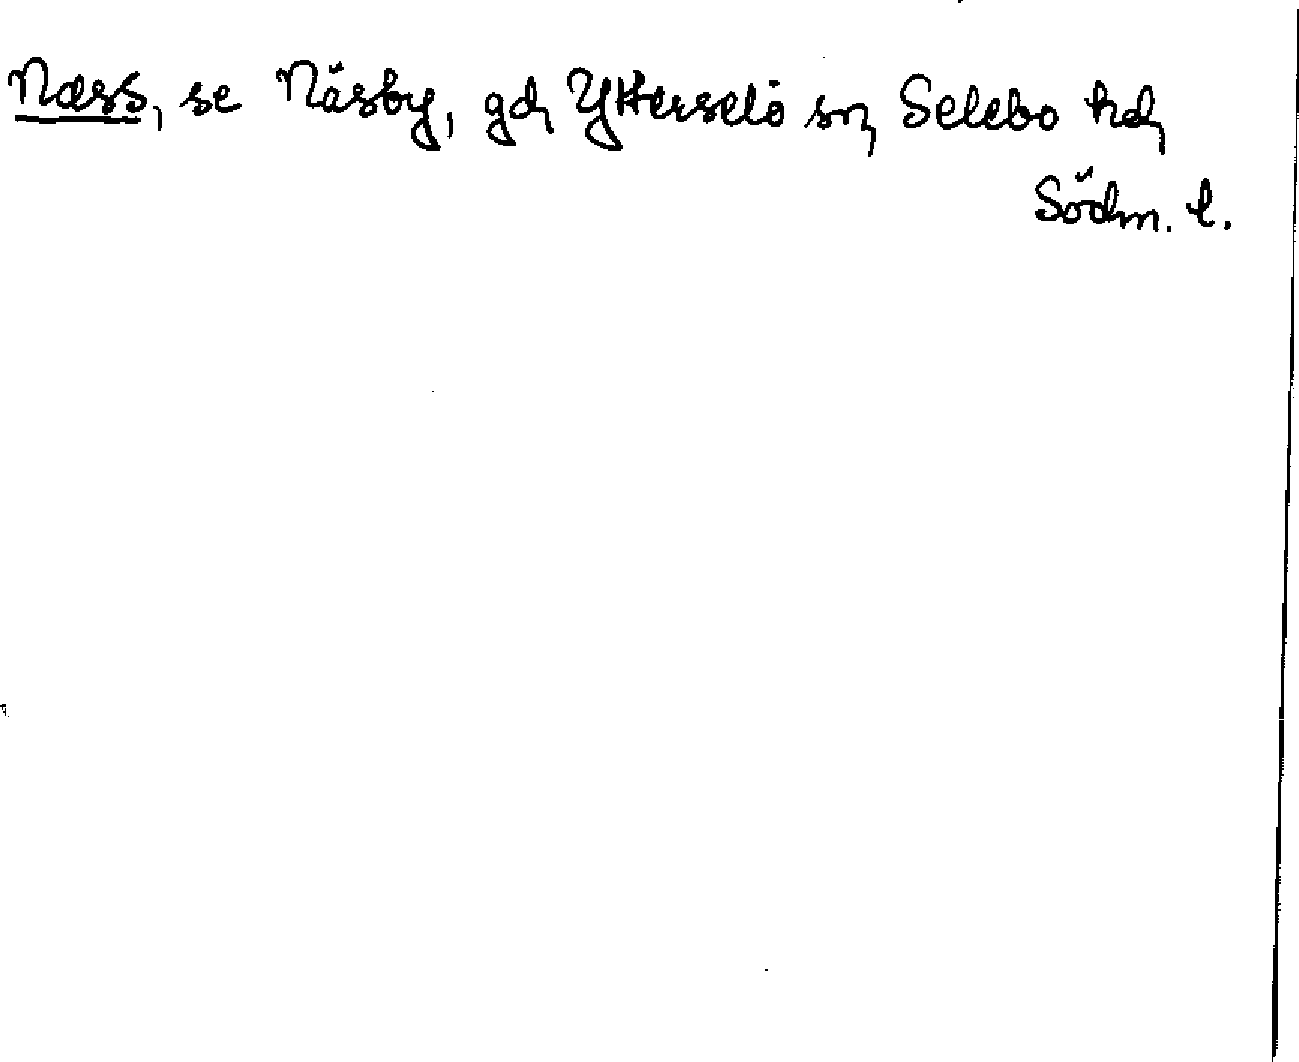 Næss, se Näsby, gd, Ytterselö sn, Selebo hd,
Södm. l.